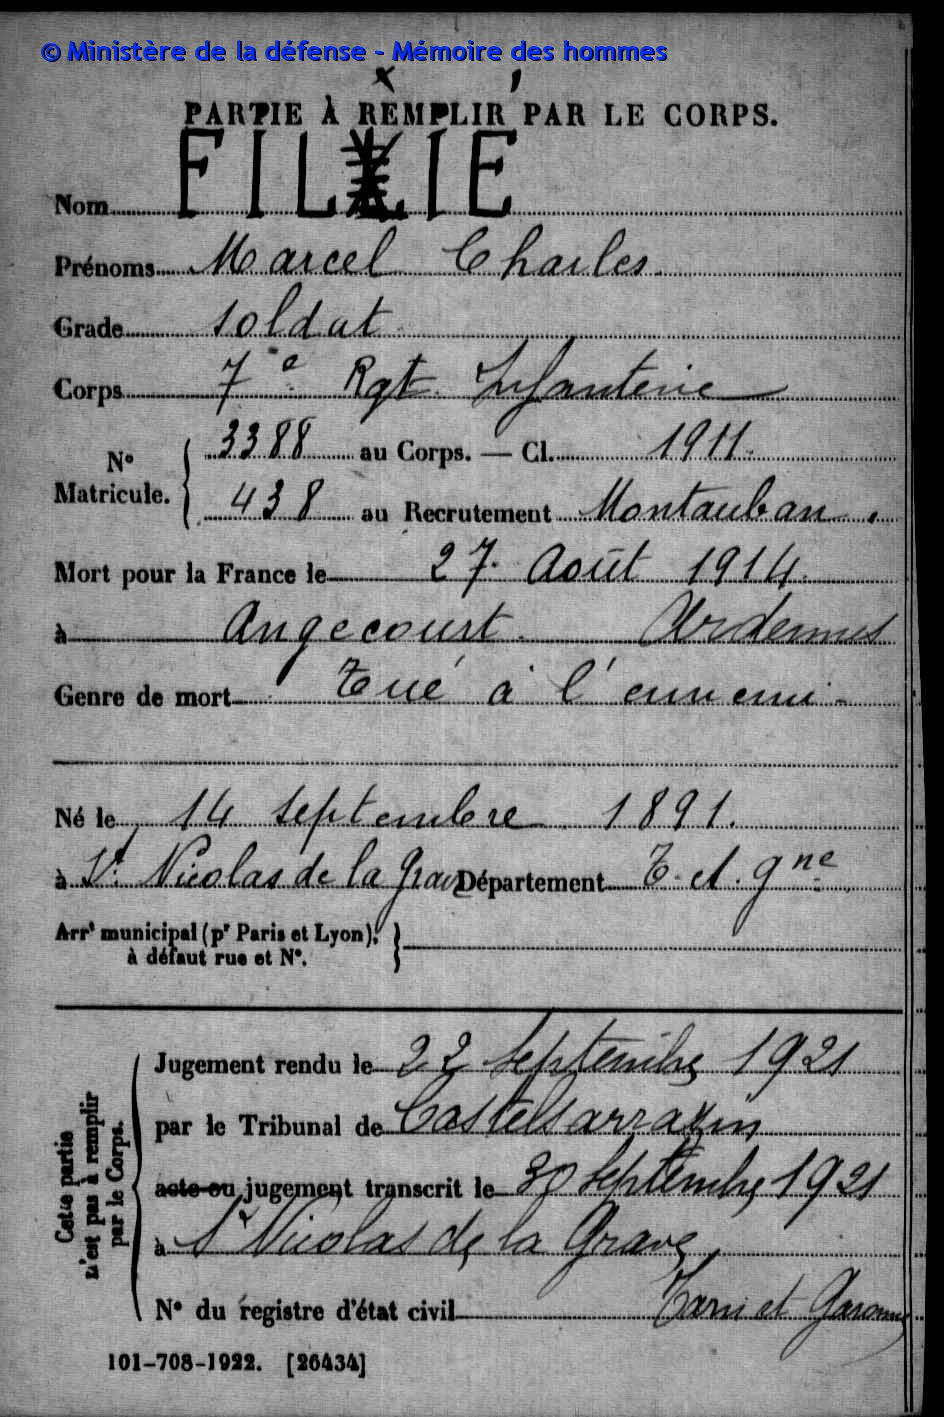 © Ministère de la défense - Mémoire des hommes
PARTIE À REMPLIR PAR LE CORPS.
Nom FILIE
Prénoms Marcel Charles.
Grade soldat
Corps 7e Rgt Infanterie
N° Matricule. 3388 au Corps. — Cl. 1911.
438 au Recrutement Montauban.
Mort pour la France le 27 Août 1914.
à Angecourt. Ardennes
Genre de mort Tué à l'ennemi -
Né le 14 septembre 1891.
à St. Nicolas de la Grave Département T. et. gne.
Arrt municipal (pr Paris et Lyon),
à défaut rue et N°.
Cette partie n'est pas à remplir par le Corps.
Jugement rendu le 22 Septembre 1921
par le Tribunal de Castelsarrazin
acte ou jugement transcrit le 30 Septembre 1921
à St Nicolas de la Grave
N° du registre d'état civil Tarn et Garonne
101-708-1922. [26434]